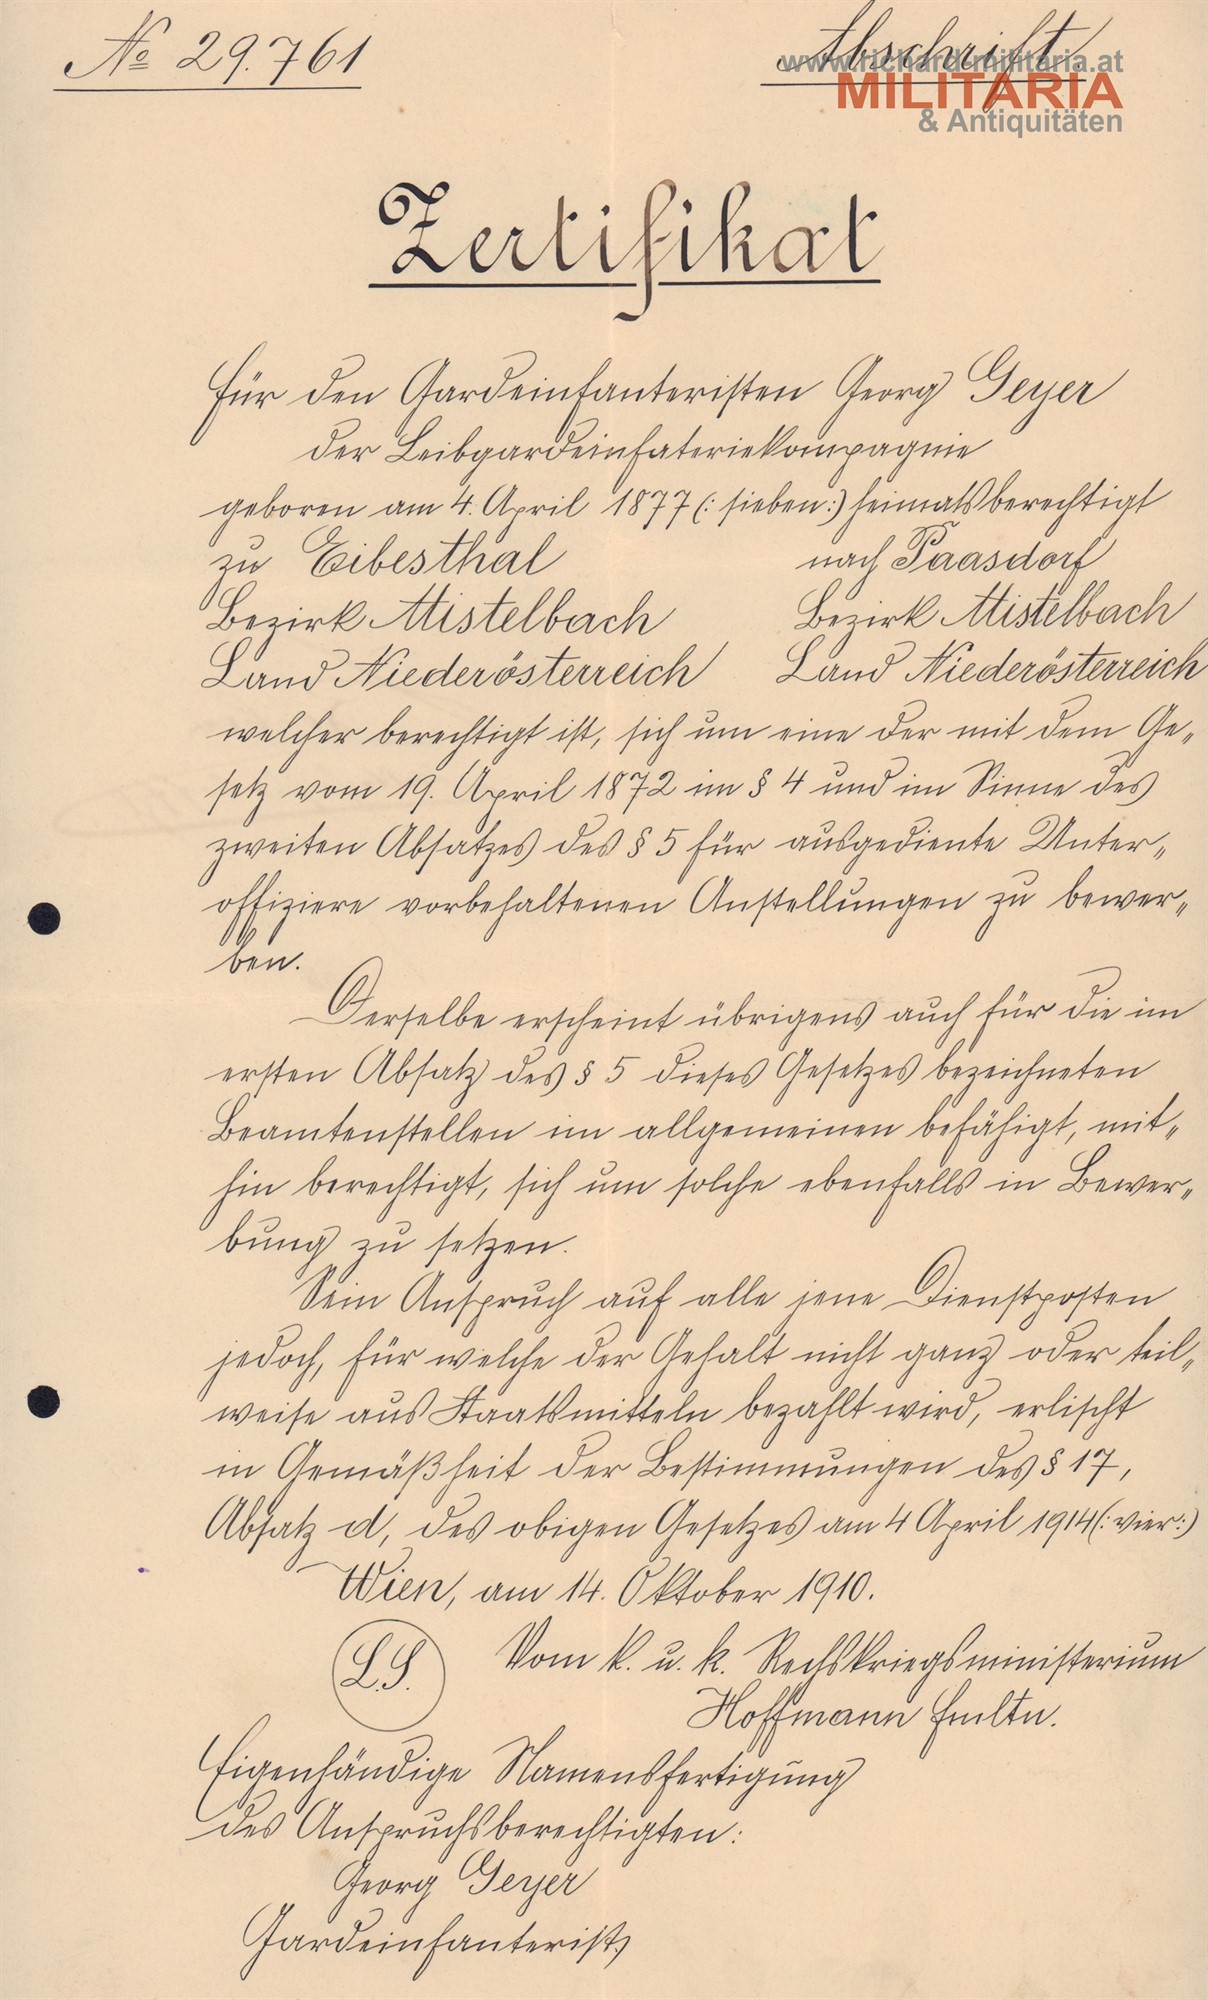 № 29.761
Abschrift.
www.richard-militaria.at
MILITARIA
& Antiquitäten
Zertifikat
für den Gardeinfanteristen Georg Geyer
der Leibgardeinfateriekompagnie
geboren am 4. April 1877 (: sieben :) heimatsberechtigt
zu Eibesthal nach Paasdorf
Bezirk Mistelbach Bezirk Mistelbach
Land Niederösterreich Land Niederösterreich
welcher berechtigt ist, sich um eine der mit dem Ge„
setz vom 19. April 1872 im § 4 und im Sinne des
zweiten Absatzes des § 5 für ausgediente Unter„
offiziere vorbehaltenen Anstellungen zu bewer„
ben.
Derselbe erscheint übrigens auch für die im
ersten Absatz des § 5 dieses Gesetzes bezeichneten
Beamtenstellen im allgemeinen befähigt, mit„
hin berechtigt, sich um solche ebenfalls in Bewer„
bung zu setzen.
Sein Anspruch auf alle jene Dienstposten
jedoch, für welche der Gehalt nicht ganz oder teil„
weise aus Staatsmitteln bezahlt wird, erlischt
in Gemäßheit der Bestimmungen des § 17,
Absatz d, des obigen Gesetzes am 4 April 1914 (: vier :)
Wien, am 14. Oktober 1910.
L.S. Vom k. u. k. Rechskriegsministerium
Hoffmann Fmltn.
Eigenhändige Namensfertigung
des Anspruchsberechtigten:
Georg Geyer
Gardeinfanterist